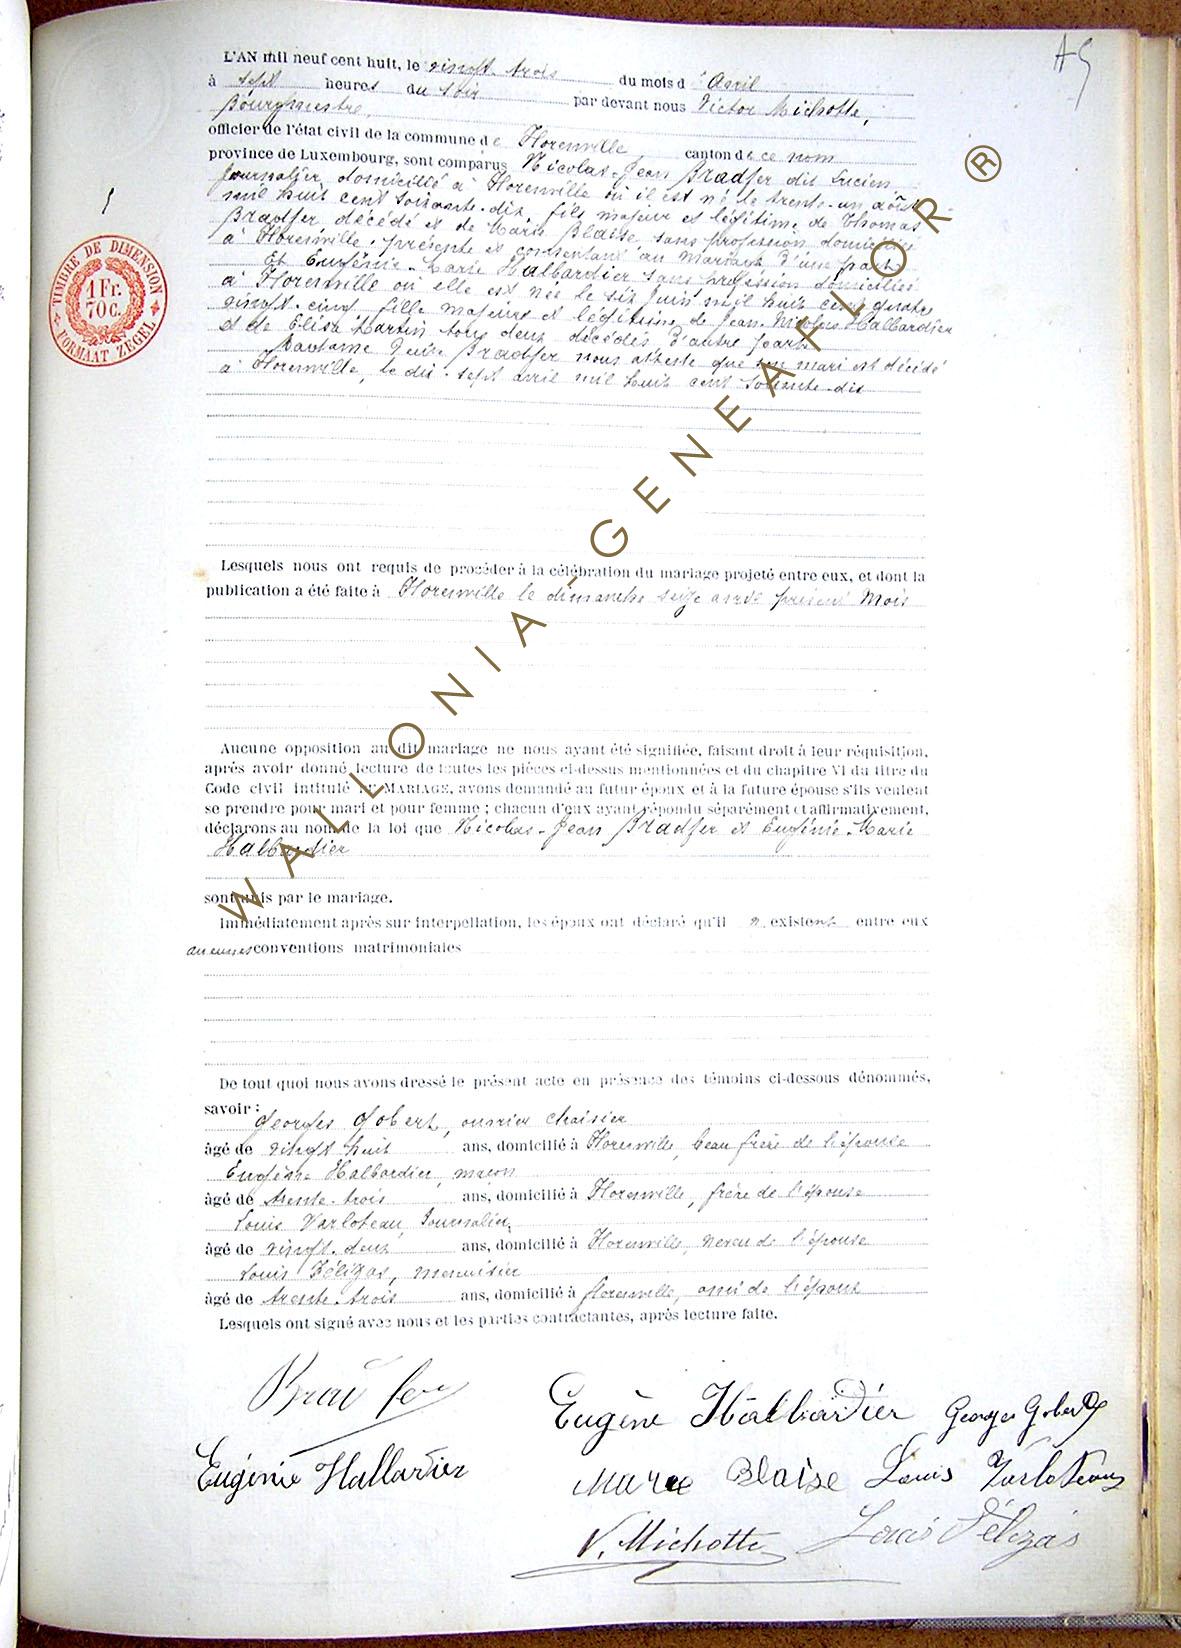 A5
L'AN mil neuf cent huit, le vingt-trois du mois d'Avril
à sept heures du soir par devant nous Victor Michotte,
Bourgmestre,
officier de l'état civil de la commune de Florenville canton de ce nom
province de Luxembourg, sont comparus Nicolas-Jean Bradfer dit Lucien
journalier domicilié à Florenville où il est né le trente-un août
mil huit cent soixante-dix, fils majeur et légitime de Thomas
Bradfer décédé et de Marie Blaise, sans profession domiciliée
à Florenville, présente et consentant au Mariage d'une part
Et Eugénie-Marie Halbardier sans profession domiciliée
à Florenville où elle est née le six Juin mil huit cent quatre
vingt-cinq fille majeure et légitime de Jean-Nicolas Halbardier
et de Elisa Martin tous deux décédés d'autre part
Madame Bradfer nous atteste que son mari est décédé
à Florenville, le dix-sept avril mil huit cent soixante-dix
TIMBRE DE DIMENSION
1 Fr.
70 c.
FORMAAT ZEGEL
Lesquels nous ont requis de procéder à la célébration du mariage projeté entre eux, et dont la
publication a été faite à Florenville le dimanche seize avril présent Mois
Aucune opposition au dit mariage ne nous ayant été signifiée, faisant droit à leur réquisition,
après avoir donné lecture de toutes les pièces ci-dessus mentionnées et du chapitre VI du titre du
Code civil intitulé DU MARIAGE, avons demandé au futur époux et à la future épouse s'ils veulent
se prendre pour mari et pour femme ; chacun d'eux ayant répondu séparément et affirmativement,
déclarons au nom de la loi que Nicolas-Jean Bradfer et Eugénie-Marie
Halbardier
sont unis par le mariage.
Immédiatement après sur interpellation, les époux ont déclaré qu'il n'existent entre eux
aucunes conventions matrimoniales
De tout quoi nous avons dressé le présent acte en présence des témoins ci-dessous dénommés,
savoir :
Georges Gobert, ouvrier chaisier
âgé de vingt huit ans, domicilié à Florenville, beau frère de l'épouse
Eugène Halbardier, maçon
âgé de trente-trois ans, domicilié à Florenville, frère de l'épouse
Louis Varloteau, Journalier,
âgé de vingt-deux ans, domicilié à Florenville, neveu de l'épouse
Louis Féligas, menuisier
âgé de trente-trois ans, domicilié à Florenville, ami de l'époux
Lesquels ont signé avec nous et les parties contractantes, après lecture faite.
Bradfer
Eugène Halbardier Georges Gobert
Eugénie Hallardier
Marie Blaise Louis Varloteau
V. Michotte Louis Féligas
WALLONIA-GENEAFLOR ®